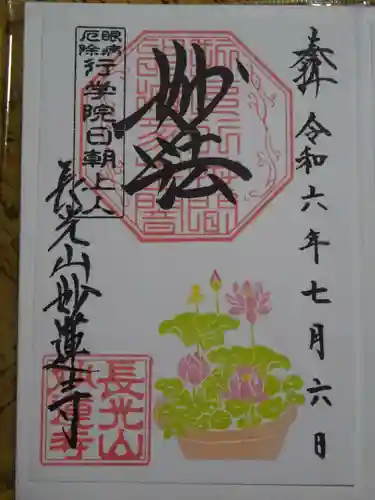 奉拝 令和六年七月六日
妙法
眼病
厄除
行学院日朝上人
長光山妙蓮寺
長光山
妙蓮寺